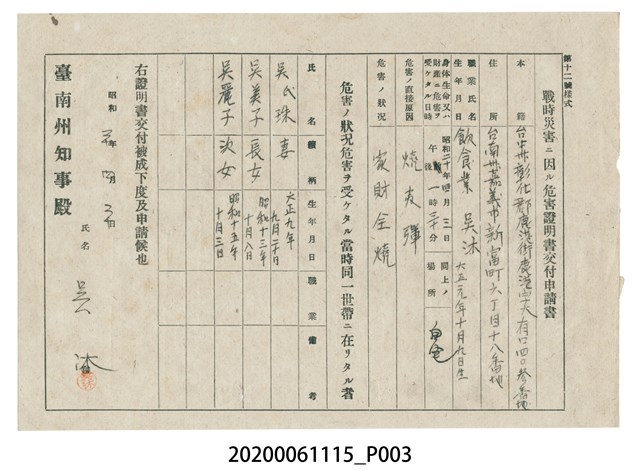 第十二號樣式
戰時災害ニ因ル危害證明書交付申請書
本籍 台中州彰化郡鹿港街鹿港字大有口四〇參番地
住所 台南州嘉義市新富町六丁目十八番地
職業氏名 生年月日 飲食業 吳沐 大正元年十月九日生
身体生命又ハ財產ニ危害ヲ受ケタル日時 昭和二十年四月三日 午後一時三十分 同上ノ場所 自宅
危害ノ直接原因 燒夷彈
危害ノ狀況 家財全燒
危害ノ狀況危害ヲ受ケタル當時同一世帶ニ在リタル者
氏名 續柄 生年月日 職業 備考
吳氏珠 妻 大正九年九月二十日
吳美子 長女 昭和十三年十月八日
吳麗子 次女 昭和十五年十月三日
右證明書交付被成下度及申請候也
昭和 年 四月 日
氏名 吳沐
臺南州知事殿
20200061115_P003